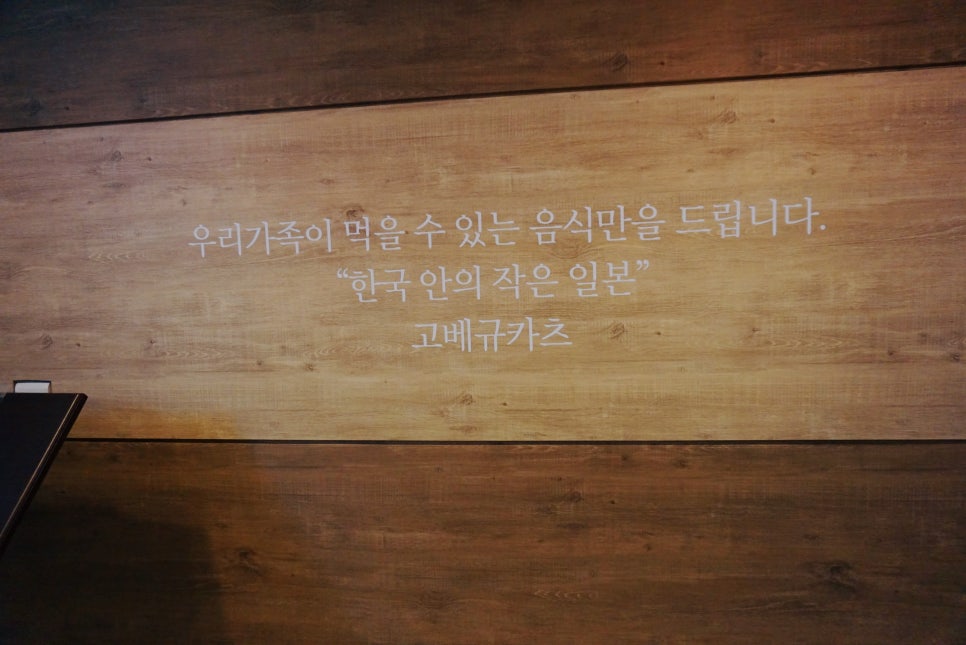 우리가족이 먹을 수 있는 음식만을 드립니다.
“한국 안의 작은 일본”
고베규카츠